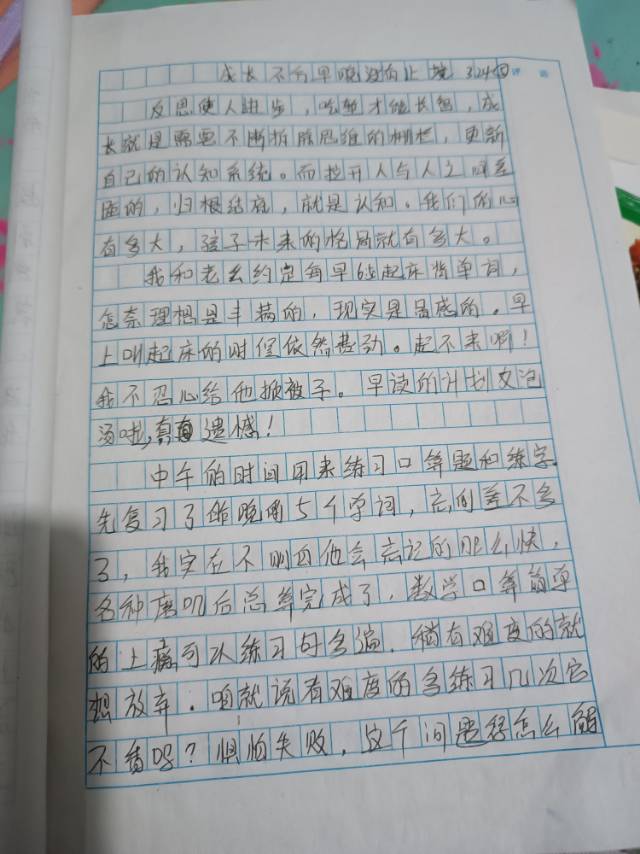 成长不分早晚没有止境 3.24日
反思使人进步，吃堑才能长智，成
长就是需要不断拆除思维的栅栏，更新
自己的认知系统。而拉开人与人之间差
距的，归根结底，就是认知。我们的心
有多大，孩子未来的格局就有多大。
我和老幺约定每早6点起床背单词，
怎奈理想是丰满的，现实是骨感的。早
上叫起床的时候依然费劲。起不来啊！
我不忍心给他掀被子。早读的计划又泡
汤啦，真遗憾！
中午的时间用来练习口算题和练字
先复习了昨晚的5个单词，忘的差不多
了，我实在不明白他会忘记的那么快，
各种磨叽后总算完成了，数学口算简单
的上瘾可以练习好多遍，稍有难度的就
想放弃。咱就说有难度的多练习几次它
不香吗？惧怕失败，这个问题怎么解